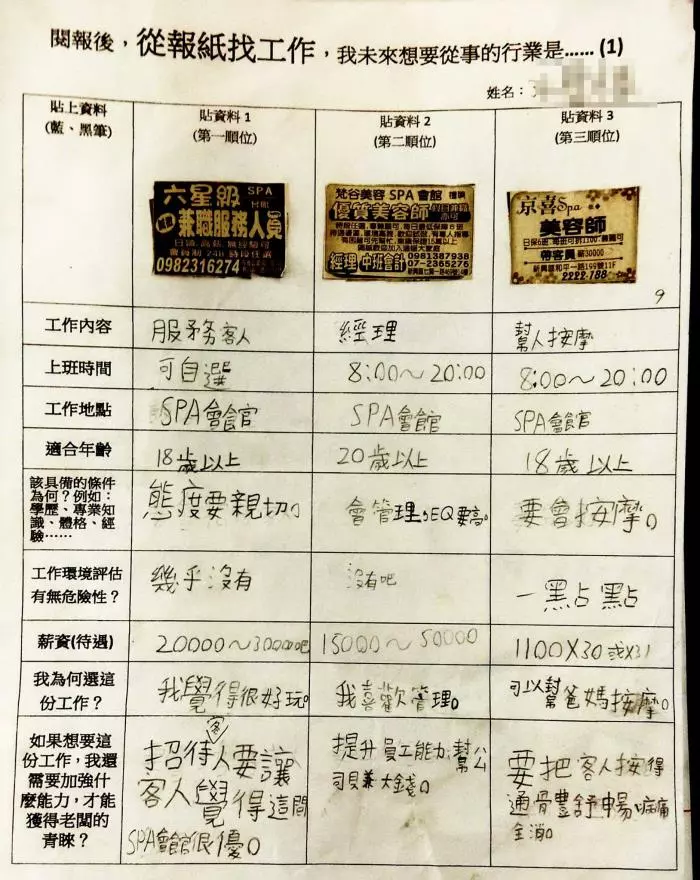 閱報後，從報紙找工作，我未來想要從事的行業是…… (1)
姓名：
貼上資料
(藍、黑筆)
貼資料 1
(第一順位)
貼資料 2
(第二順位)
貼資料 3
(第三順位)
六星級 SPA
兼職服務人員
0982316274
梵谷美容 SPA 會館
優質美容師
經理 中班會計
0981387938
07-2365276
京喜Spa
美容師
帶客員 薪30000
新興區和平一路199號11F
2222-188
9
工作內容
服務客人
經理
幫人按摩
上班時間
可自選
8:00～20:00
8:00～20:00
工作地點
SPA會館
SPA會館
SPA會館
適合年齡
18歲以上
20歲以上
18歲以上
該具備的條件
為何？例如：
學歷、專業知
識、體格、經
驗……
態度要親切。
會管理。EQ要高。
要會按摩。
工作環境評估
有無危險性？
幾乎沒有
沒有吧
一點點
薪資(待遇)
20000～30000吧
15000～50000
1100X30或X31
我為何選這
份工作？
我覺得很好玩。
我喜歡管理。
可以幫爸媽按摩。
如果想要這
份工作，我還
需要加強什
麼能力，才能
獲得老闆的
青睞？
招待客人要讓
客人覺得這間
SPA會館很優。
提升員工能力幫公
司賺大錢。
要把客人按得
通骨豐舒暢，痠痛
全消。